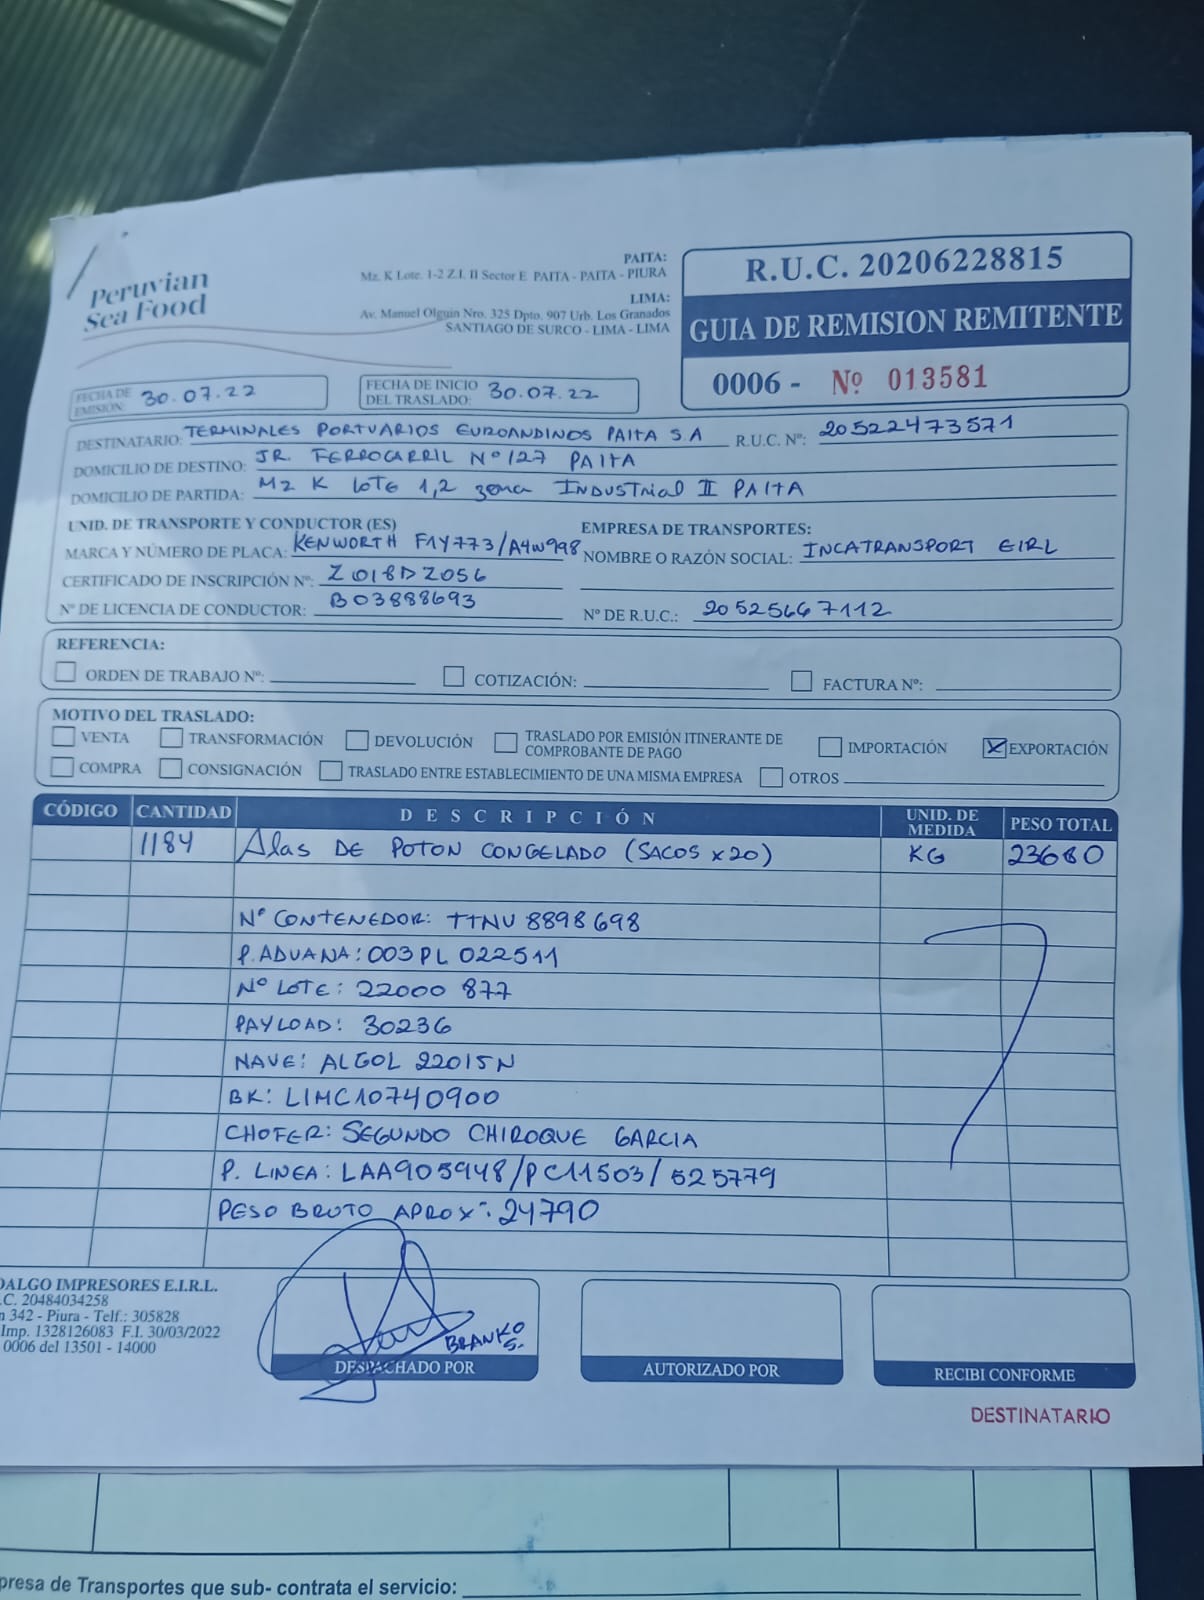 Peruvian
Sea Food
PAITA:
Mz. K Lote. 1-2 Z.I. II Sector E PAITA - PAITA - PIURA
LIMA:
Av. Manuel Olguin Nro. 325 Dpto. 907 Urb. Los Granados
SANTIAGO DE SURCO - LIMA - LIMA
R.U.C. 20206228815
GUIA DE REMISION REMITENTE
0006 - Nº 013581
FECHA DE EMISIÓN: 30.07.22
FECHA DE INICIO DEL TRASLADO: 30.07.22
DESTINATARIO: TERMINALES PORTUARIOS EUROANDINOS PAITA S.A R.U.C. Nº: 20522473571
DOMICILIO DE DESTINO: JR. FERROCARRIL Nº 127 PAITA
DOMICILIO DE PARTIDA: Mz K LOTE 1,2 zona INDUSTRIAL II PAITA
UNID. DE TRANSPORTE Y CONDUCTOR (ES) EMPRESA DE TRANSPORTES:
MARCA Y NÚMERO DE PLACA: KENWORTH F1Y773/A4W998 NOMBRE O RAZÓN SOCIAL: INCATRANSPORT EIRL
CERTIFICADO DE INSCRIPCIÓN Nº: Z018DZ056
Nº DE LICENCIA DE CONDUCTOR: B03888693 Nº DE R.U.C.: 20525667112
REFERENCIA:
ORDEN DE TRABAJO Nº: COTIZACIÓN: FACTURA Nº:
MOTIVO DEL TRASLADO:
VENTA TRANSFORMACIÓN DEVOLUCIÓN TRASLADO POR EMISIÓN ITINERANTE DE COMPROBANTE DE PAGO IMPORTACIÓN EXPORTACIÓN
COMPRA CONSIGNACIÓN TRASLADO ENTRE ESTABLECIMIENTO DE UNA MISMA EMPRESA OTROS
CÓDIGO CANTIDAD DESCRIPCIÓN UNID. DE MEDIDA PESO TOTAL
1184 Alas DE POTON CONGELADO (SACOS x 20) KG 23680
Nº CONTENEDOR: TTNU 8898698
P. ADUANA: 003PL 022511
Nº LOTE: 22000 877
PAYLOAD: 30236
NAVE: ALGOL 22015N
BK: LIMC10740900
CHOFER: SEGUNDO CHIROQUE GARCIA
P. LINEA: LAA905948/PC11503/525779
PESO BRUTO APROX: 24790
DALGO IMPRESORES E.I.R.L.
.C. 20484034258
n 342 - Piura - Telf.: 305828
Imp. 1328126083 F.I. 30/03/2022
0006 del 13501 - 14000
BRANKO S.
DESPACHADO POR
AUTORIZADO POR
RECIBI CONFORME
DESTINATARIO
presa de Transportes que sub- contrata el servicio: